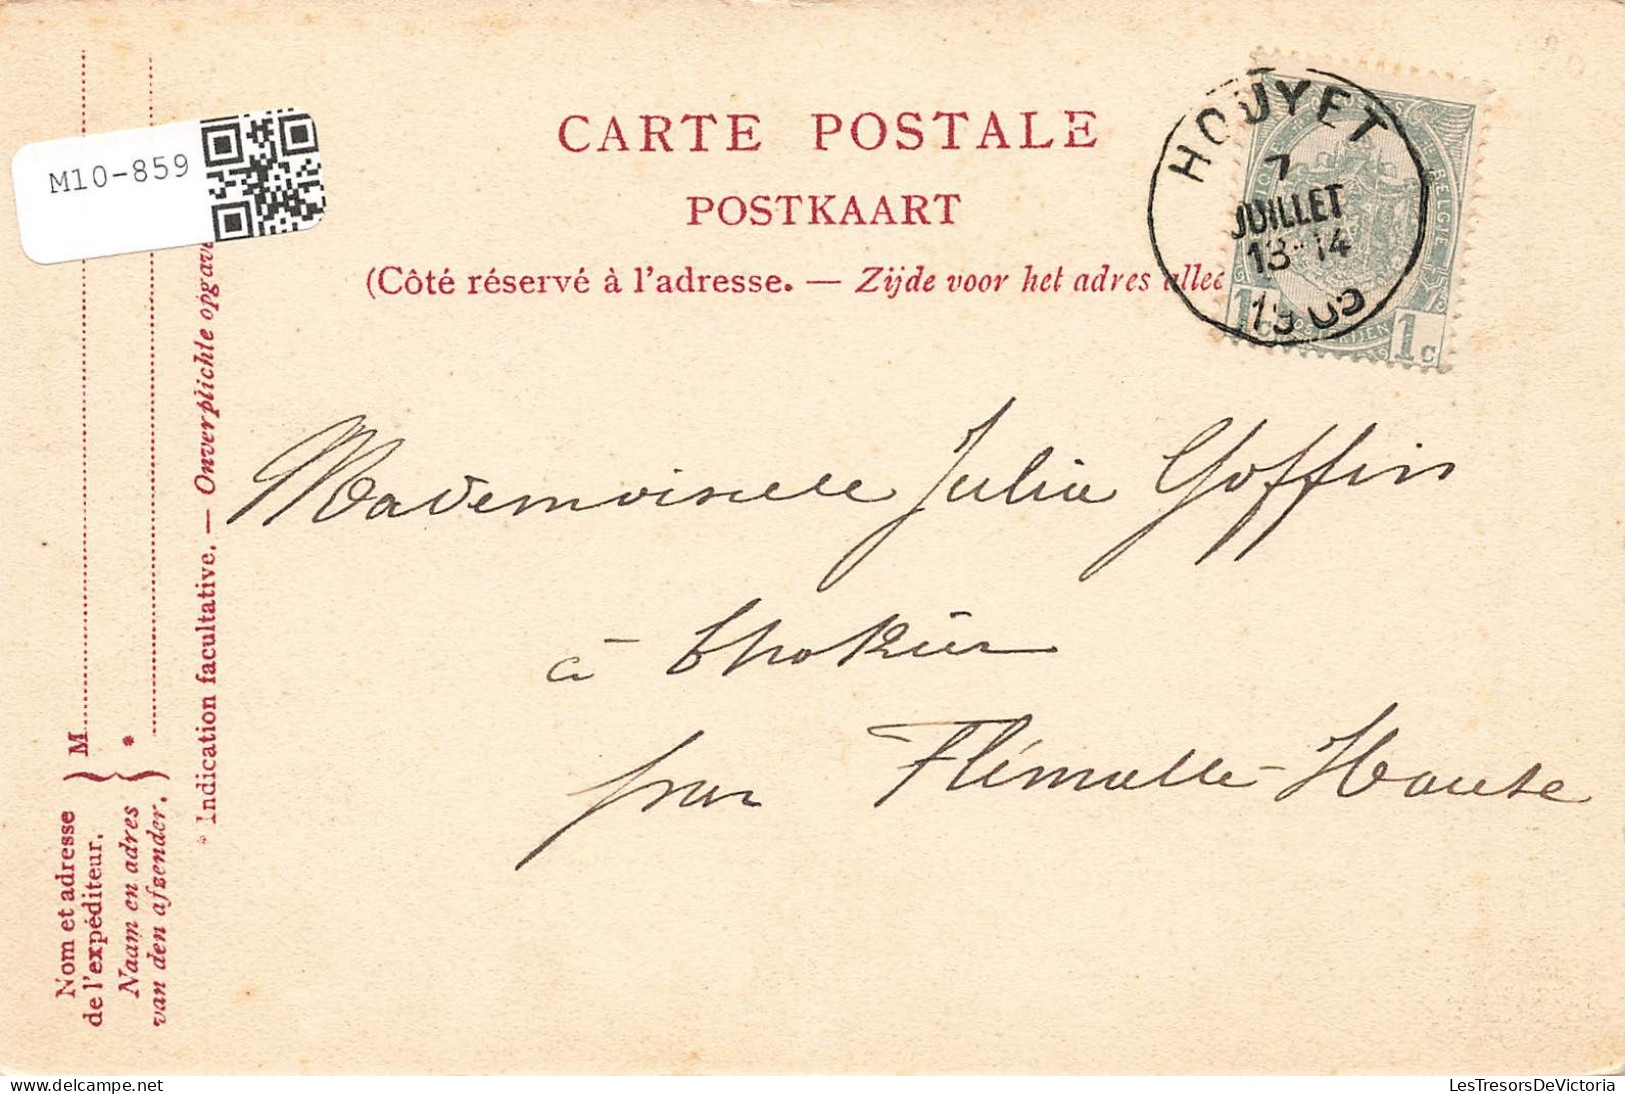 CARTE POSTALE
POSTKAART
(Côté réservé à l'adresse. — Zijde voor het adres allee
M10-859
HOUYET
7
JUILLET
13-14
BELGIE
1c 1c
Mademoiselle Julia Goffin
à Chokier
par Flémalle-Haute
Nom et adresse
de l'expéditeur.
Naam en adres
van den afzender.
M
*
* Indication facultative. — Onverplichte opgave
delcampe.net
LesTresorsDeVictoria